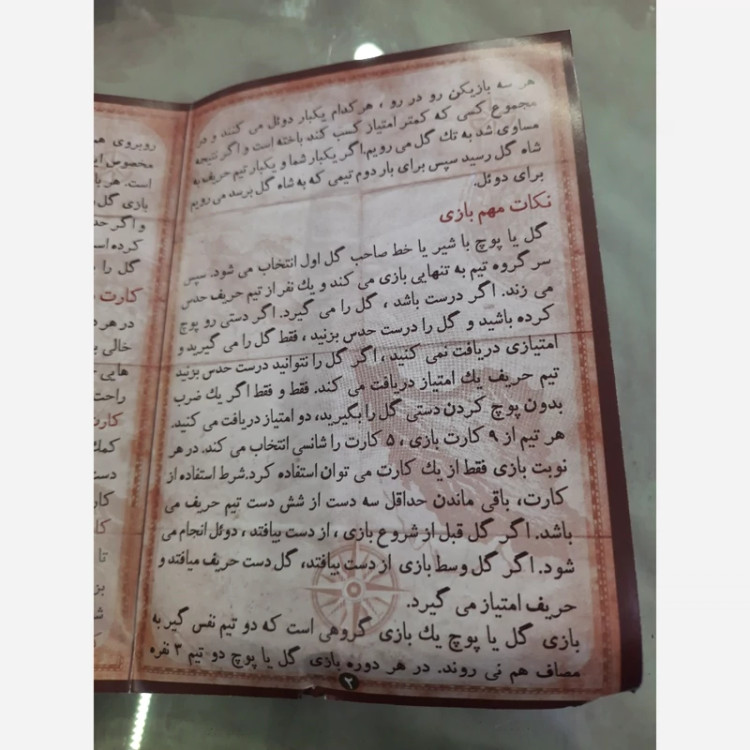 هر سه بازیکن رو در رو ، هر کدام یکبار دوئل می کنند و در
مجموع کسی که کمتر امتیاز کسب کند باخته است و اگر نتیجه
مساوی شد به تك گل می رویم.اگر یکبار شما و یکبار تیم حریف به
شاه گل رسید سپس برای بار دوم تیمی که به شاه گل برسد می رویم
برای دوئل.
نکات مهم بازی
گل یا پوچ با شیر یا خط صاحب گل اول انتخاب می شود. سپس
سر گروه تیم به تنهایی بازی می کند و یك نفر از تیم حریف حدس
می زند. اگر درست باشد ، گل را می گیرد. اگر دستی رو پوچ
کرده باشید و گل را درست حدس بزنید ، فقط گل را می گیرید و
امتیازی دریافت نمی کنید ، اگر گل را نتوانید درست حدس بزنید
تیم حریف یك امتیاز دریافت می کند. فقط و فقط اگر یك ضرب
بدون پوچ کردن دستی گل را بگیرید، دو امتیاز دریافت می کنید.
هر تیم از ۹ کارت بازی ، ۵ کارت را شانسی انتخاب می کند. در هر
نوبت بازی فقط از یك کارت می توان استفاده کرد.شرط استفاده از
کارت، باقی ماندن حداقل سه دست از شش دست تیم حریف می
باشد. اگر گل قبل از شروع بازی ، از دست بیافتد ، دوئل انجام می
شود. اگر گل وسط بازی از دست بیافتد، گل دست حریف میافتد و
حریف امتیاز می گیرد.
بازی گل یا پوچ یك بازی گروهی است که دو تیم نفس گیر به
مصاف هم نی روند. در هر دوره بازی گل یا پوچ دو تیم ۳ نفره
۲
روبروی
مخصوص
است. هر
بازی گل
و اگر
کرده
گل را
کارت
در هر
خالی
هایی
راحت
کارت
کمك
دست